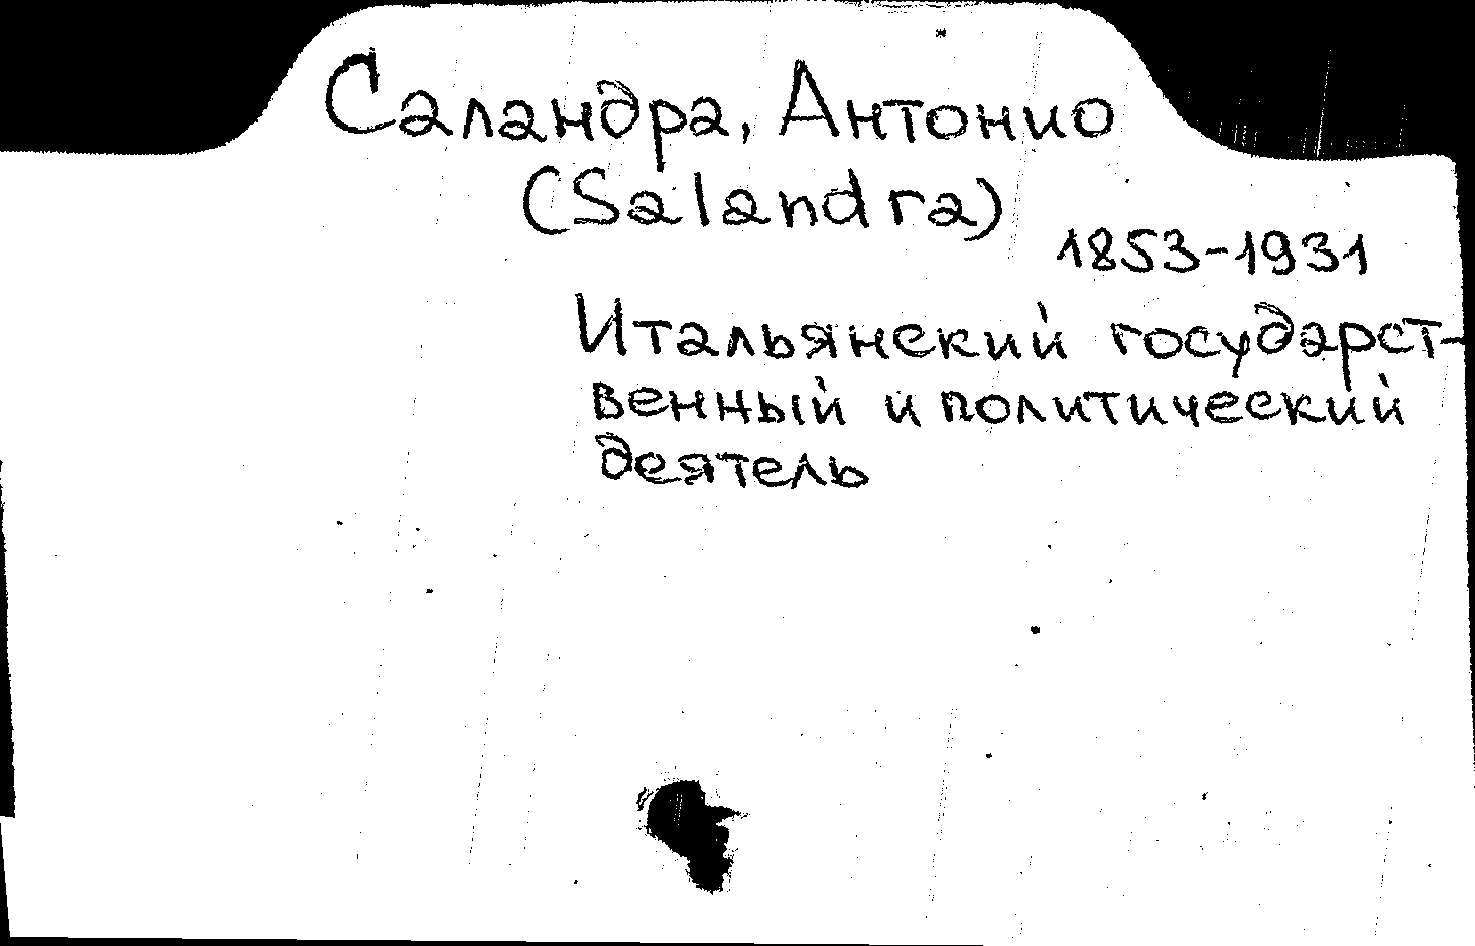 Саландра, Антонио
(Salandra)
1853-1931
Итальянский государст-
венный и политический
деятель